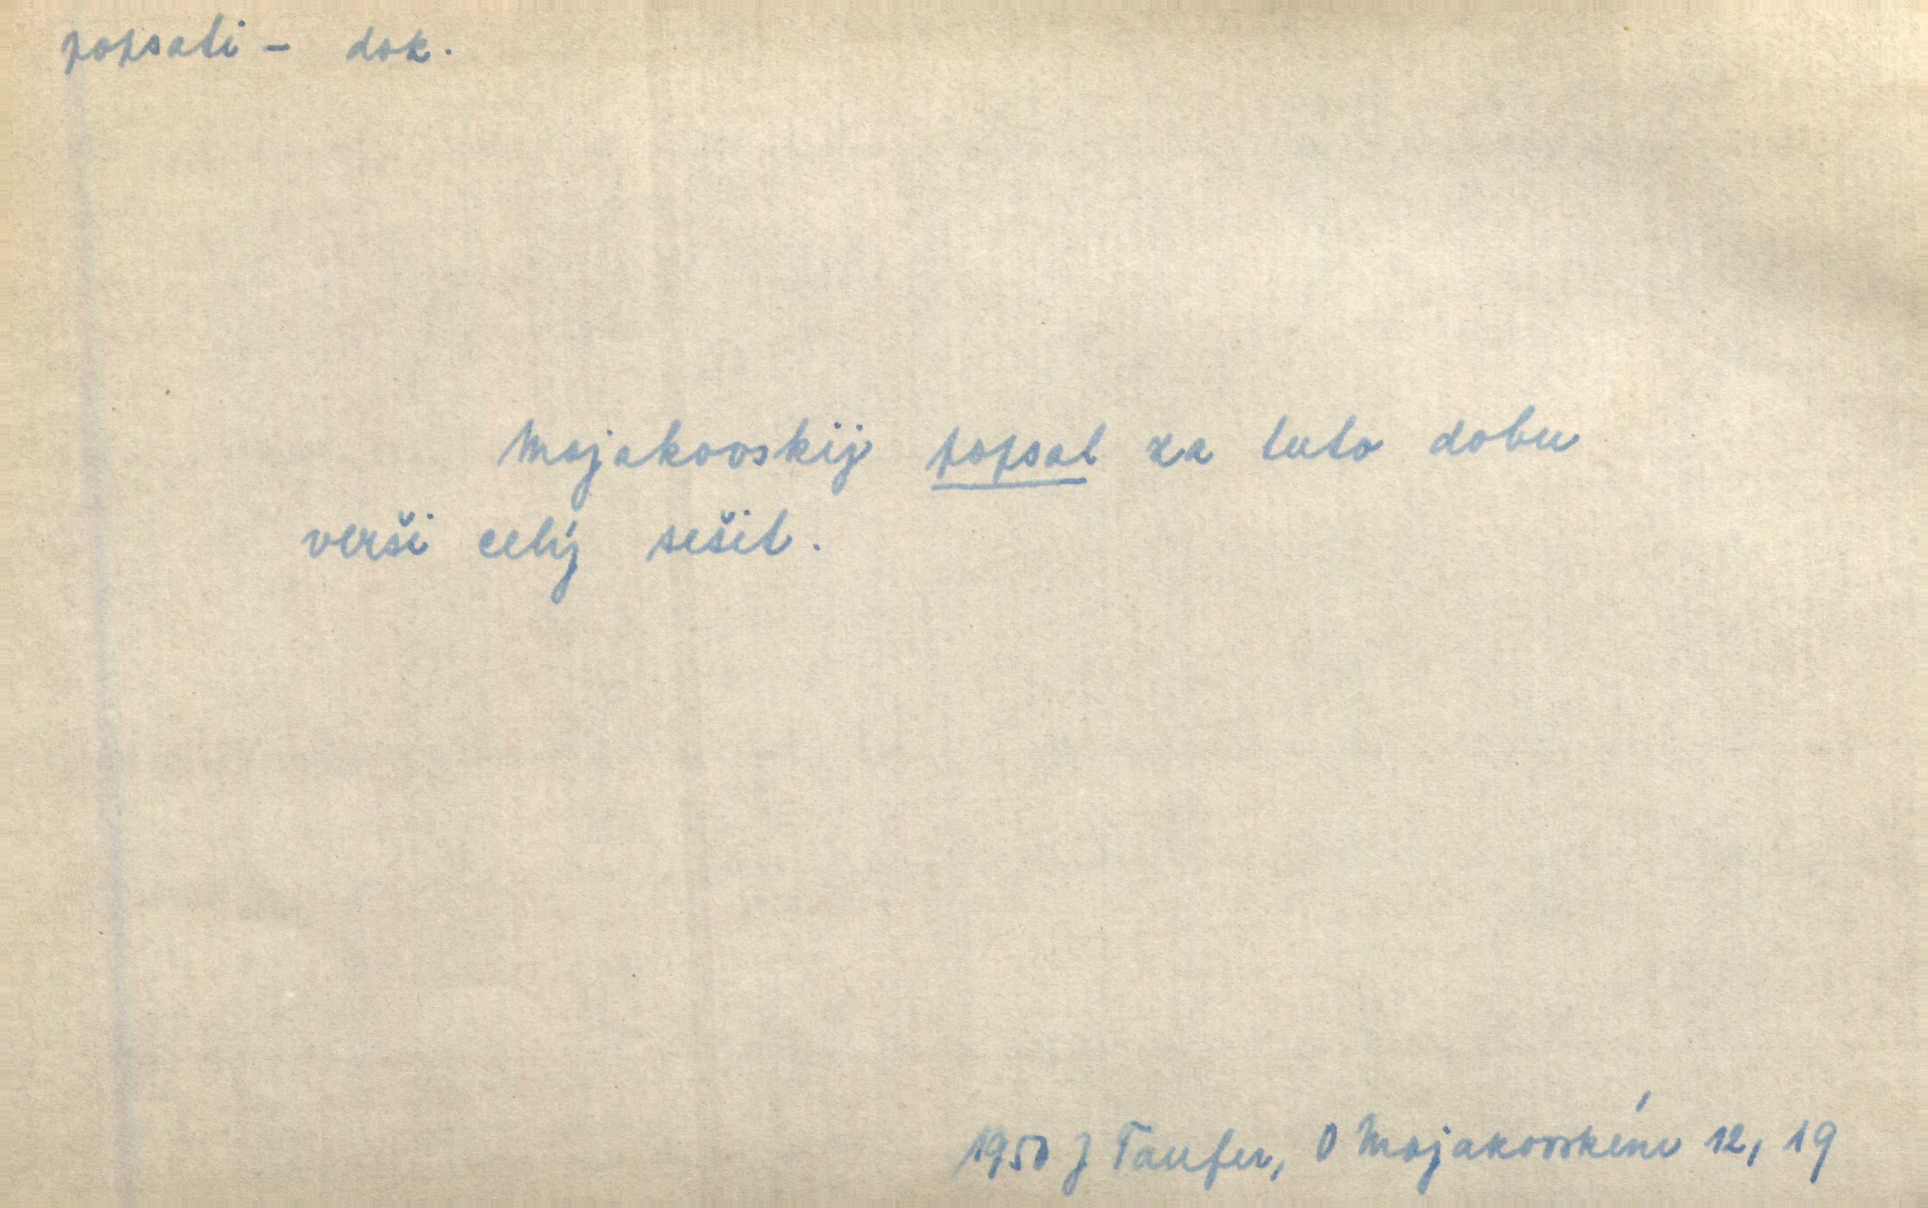 popsati - dok.
Majakovskij popsal za tuto dobu
verši celý sešit.
1950 J Taufer, O Majakovském 12, 19